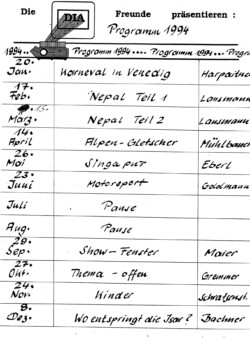 Die DIA Freunde präsentieren :
Programm 1994
1994.. Programm 1994 .... Programm 1994 ...
20. Jan. Karneval in Venedig
17. Feb. Nepal Teil 1 Lansmann
15. März. Nepal Teil 2 Lansmann
14. April Alpen-Gletscher Mühlbauer
26. Mai Singapur Eberl
23. Juni Motorsport Goldmann
Juli Pause
Aug. Pause
29. Sep. Show-Fenster Maier
27. Okt. Thema - offen Gremmer
24. Nov. Kinder
8. Dez. Wo entspringt die Isar? Bachner